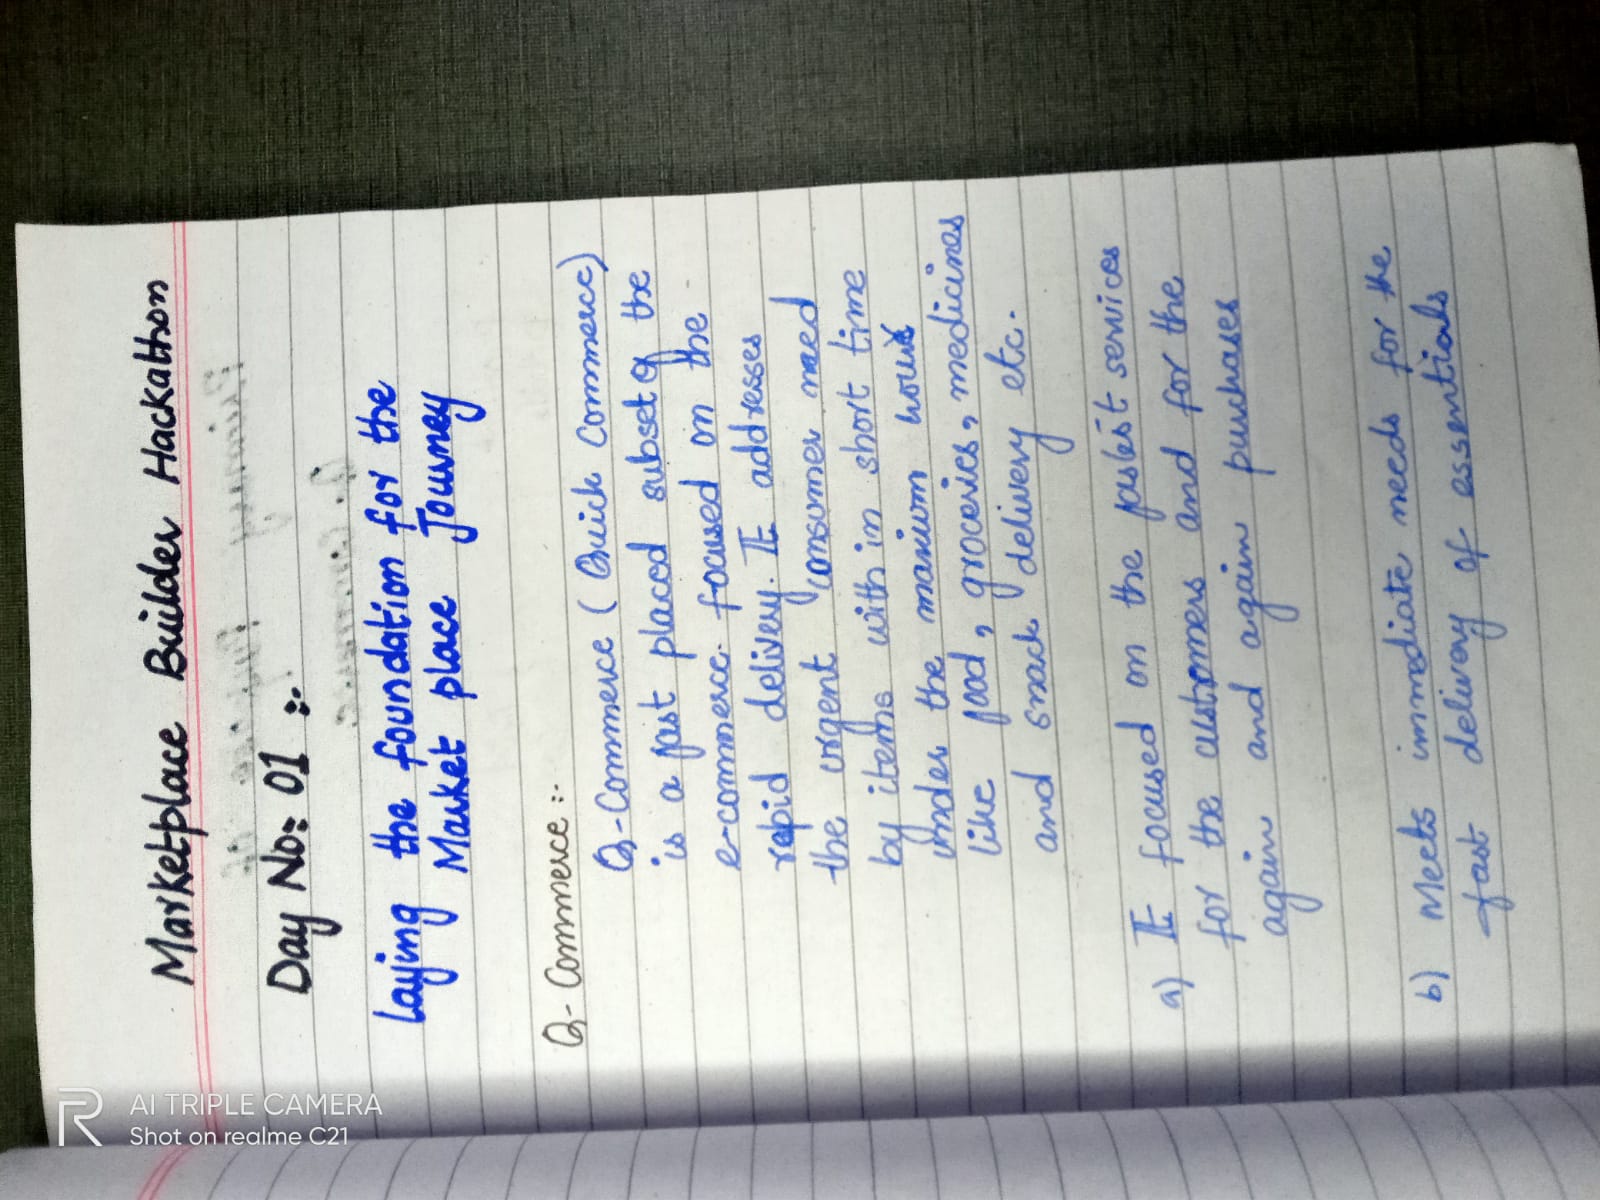 Marketplace Builder Hackathon
Day No: 01 :-
Laying the foundation for the
Market place Journey
Q- Commerce :-
Q-Commerce ( Quick Commerce)
is a fast placed subset of the
e-commerce. focused on the
rapid delivery. It addresses
the urgent consumer need
by items with in short time
under the maxium hour
like food, groceries, medicines
and snack delivery etc.
a) It focused on the fastest services
for the customers and for the
again and again purchases
b) Meets immediate needs for the
fast delivery of essentials
AI TRIPLE CAMERA
Shot on realme C21